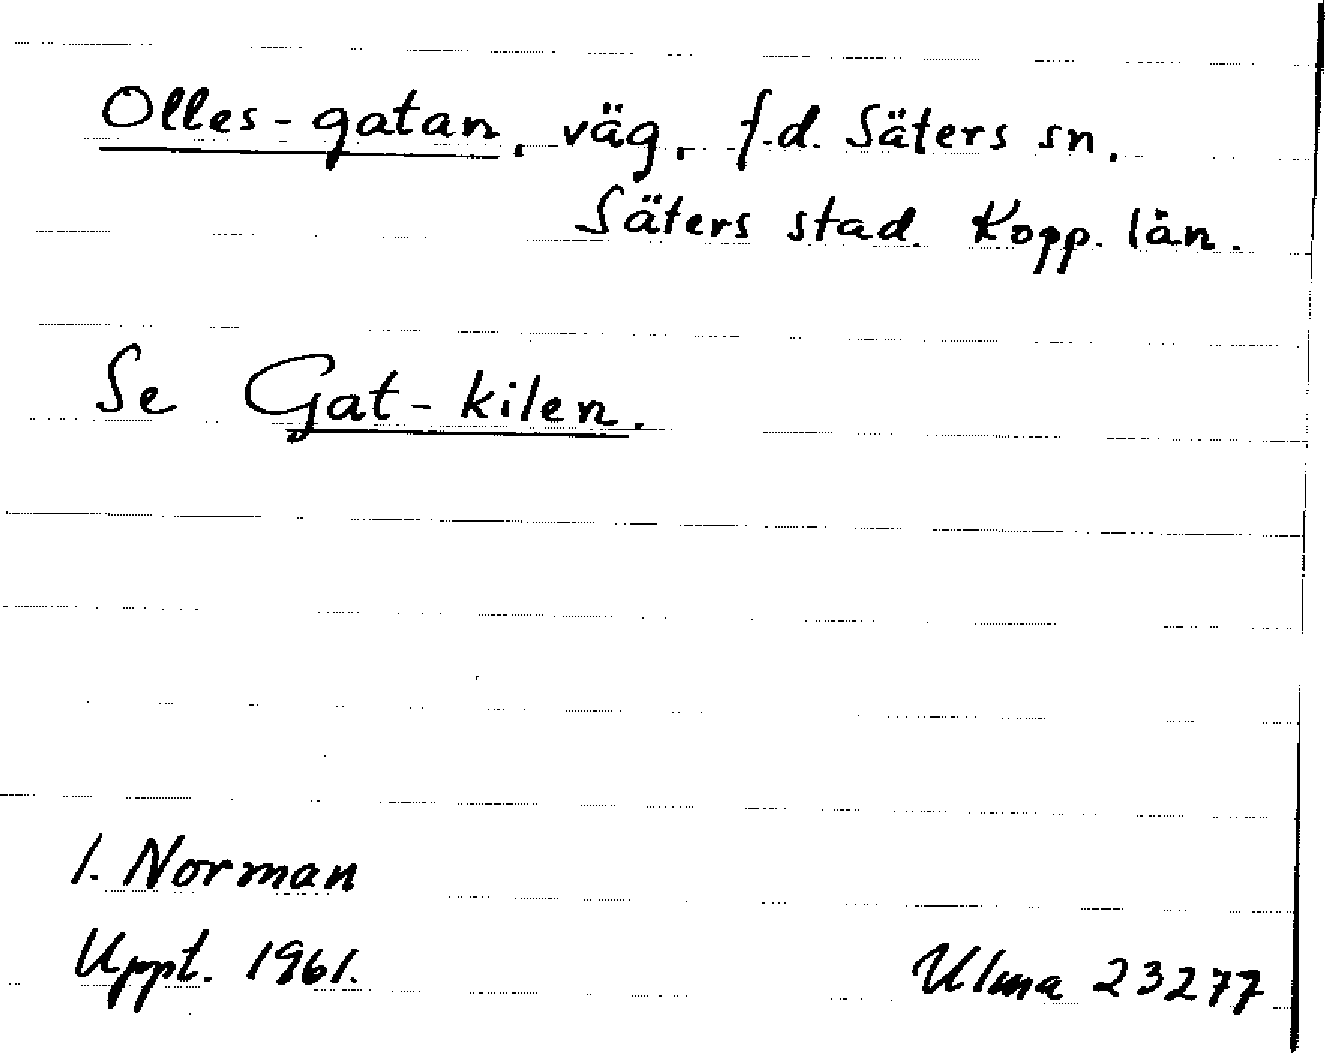 Olles-gatan, väg, f.d. Säters sn,
Säters stad. Kopp. län.
Se Gat-kilen.
I. Norman
Uppt. 1961.
Ulma 23277